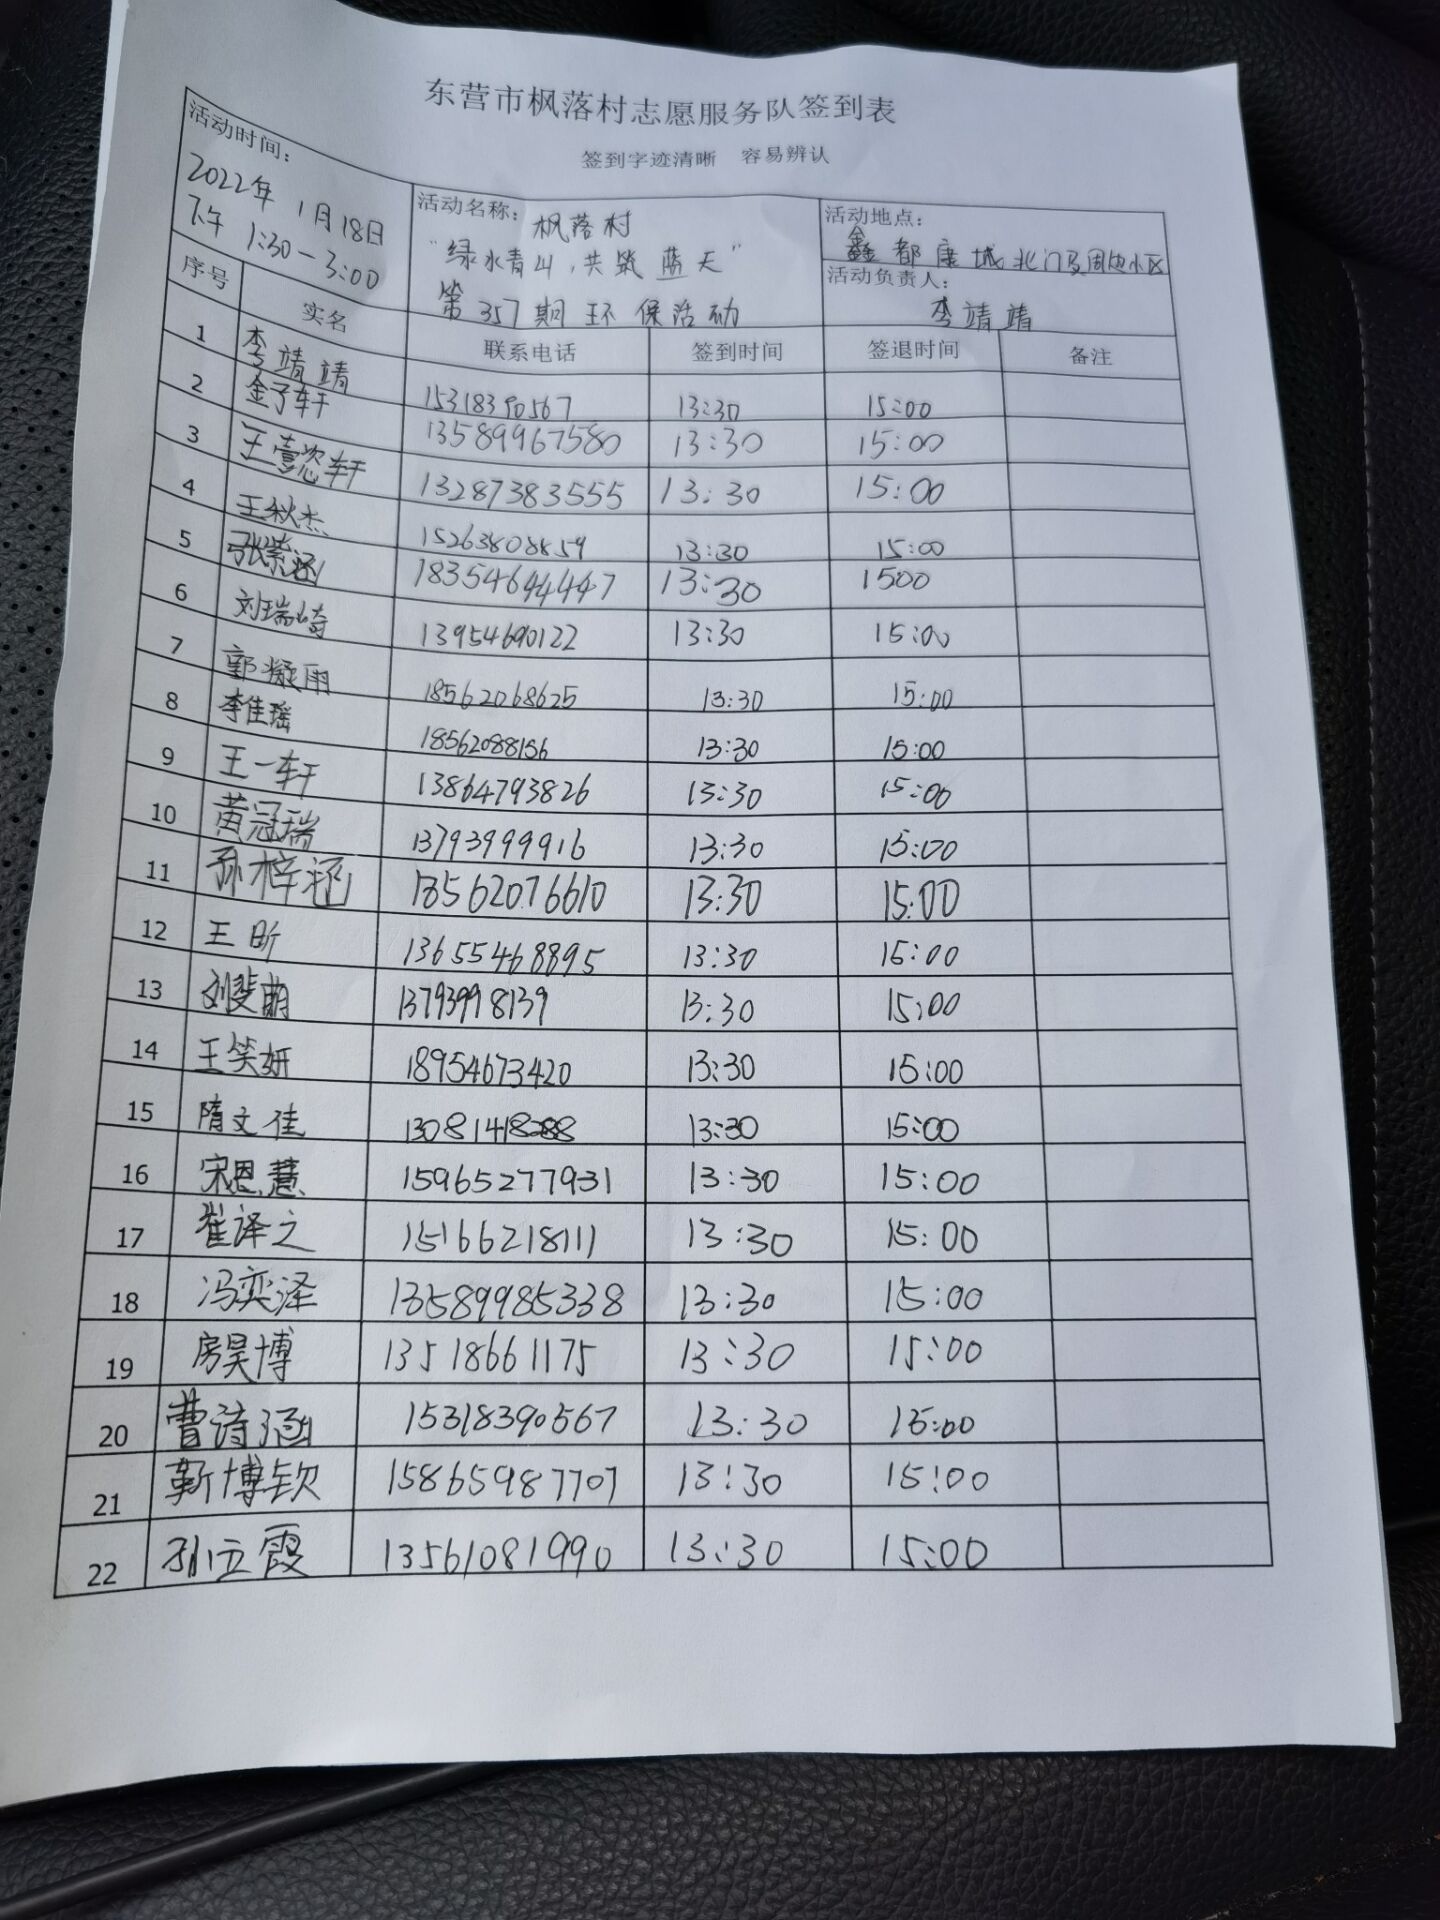 东营市枫落村志愿服务队签到表
签到字迹清晰 容易辨认
活动时间：
2022年1月18日
下午 1:30-3:00
活动名称：枫落村
"绿水青山，共筑蓝天"
第357期环保活动
活动地点：
鑫都康城北门及周边小区
活动负责人：
李靖靖
序号 实名 联系电话 签到时间 签退时间 备注
1 李靖靖 15318390567 13:30 15:00
2 金子轩 13589967580 13:30 15:00
3 王壹恣轩 13287383555 13:30 15:00
4 王秋杰 15263808859 13:30 15:00
5 张紫涵 18354644447 13:30 1500
6 刘瑞崎 13954690122 13:30 15:00
7 郭凝雨 18562068625 13:30 15:00
8 李佳瑶 18562088156 13:30 15:00
9 王一轩 13864793826 13:30 15:00
10 黄冠瑞 13793999916 13:30 15:00
11 孙梓涵 18562076610 13:30 15:00
12 王昕 13655468895 13:30 15:00
13 刘斐萌 13793998139 13:30 15:00
14 王笑妍 18954673420 13:30 15:00
15 隋文佳 13:30 15:00
16 宋恩慧 15965277931 13:30 15:00
17 崔译之 15166218111 13:30 15:00
18 冯奕泽 13589985338 13:30 15:00
19 房昊博 13518661175 13:30 15:00
20 曹诗涵 15318390567 13:30 15:00
21 靳博钦 15865987707 13:30 15:00
22 孙立霞 13561081990 13:30 15:00